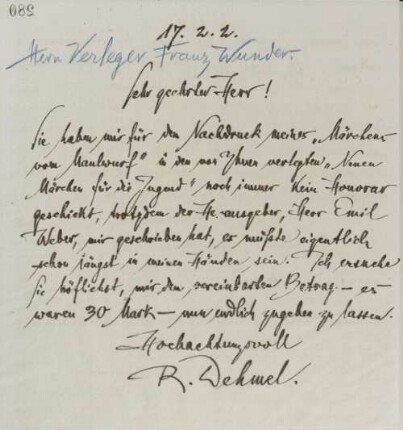 580
17. 2. 2.
Herrn Verleger Franz Wunder.
Sehr geehrter Herr!
Sie haben mir für den Nachdruck meines „Märchens
vom Maulwurf“ in den von Ihnen verlegten „Neuen
Märchen für die Jugend“ noch immer kein Honorar
geschickt, trotzdem der Herausgeber, Herr Emil
Weber, mir geschrieben hat, es müßte eigentlich
schon längst in meinen Händen sein. Ich ersuche
Sie höflichst, mir den vereinbarten Betrag – es
waren 30 Mark – nun endlich zugehen zu lassen.
Hochachtungsvoll
R. Dehmel.